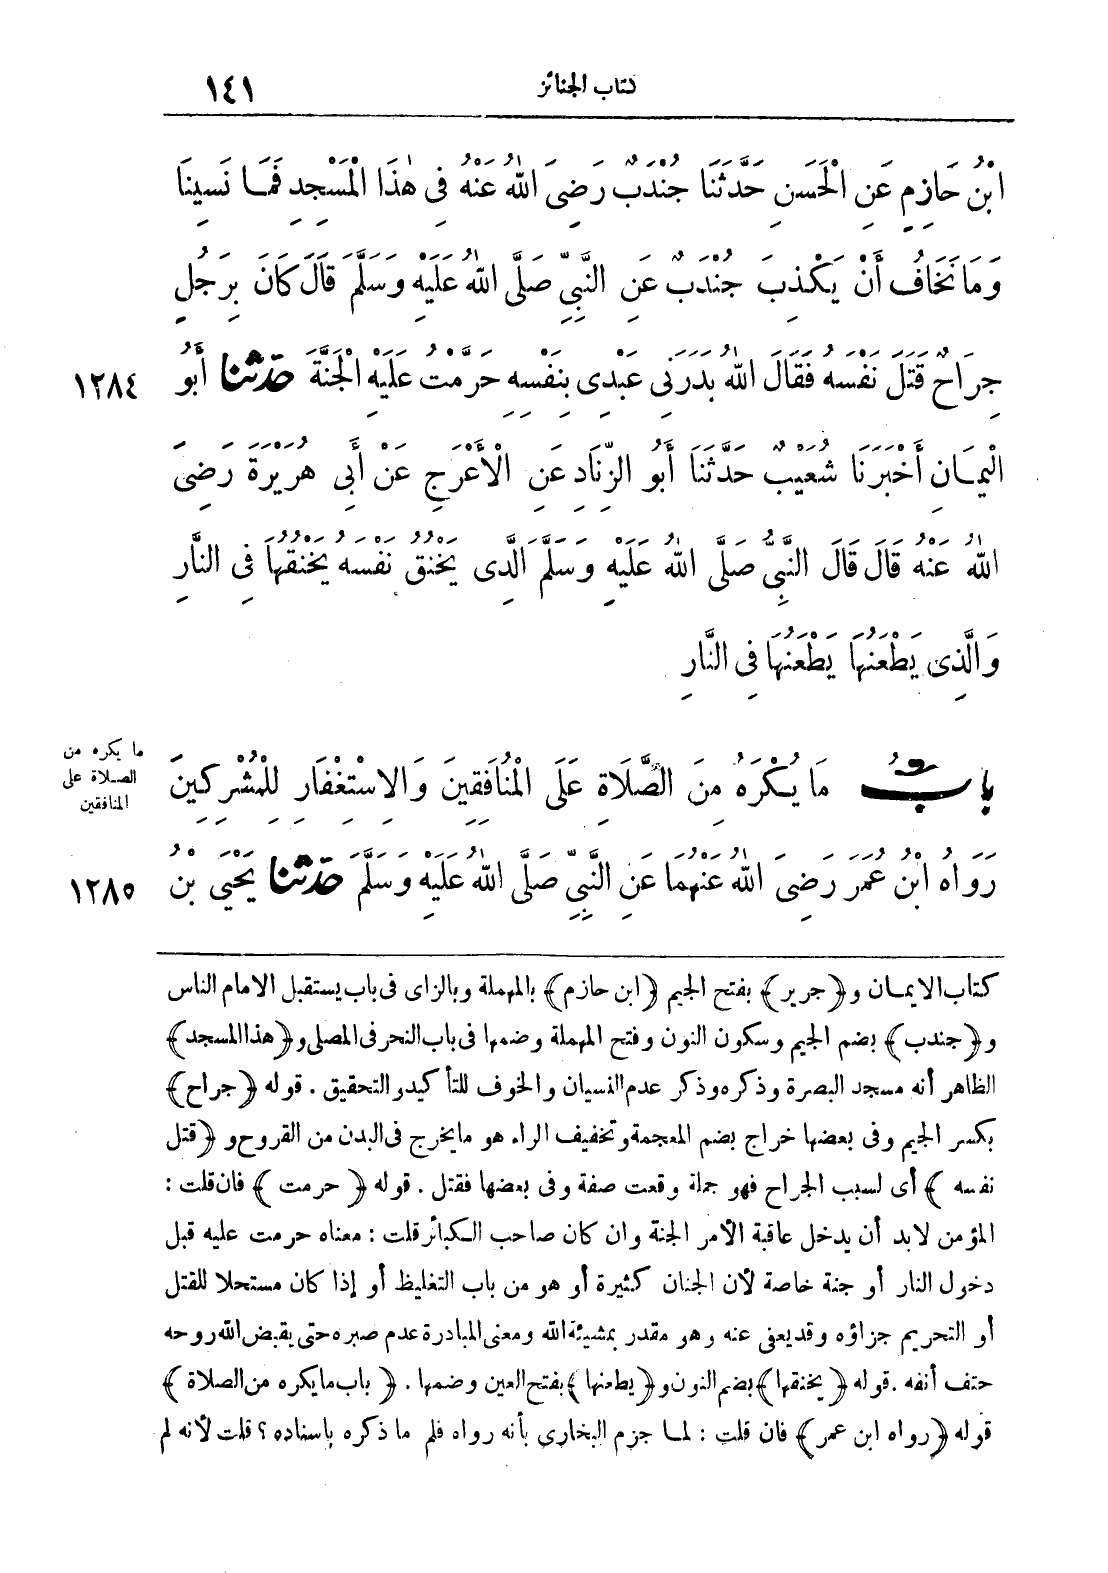 كتاب الجنائز ١٤١
ابْنُ حَازِمٍ عَنِ الْحَسَنِ حَدَّثَنَا جُنْدَبٌ رَضِيَ اللهُ عَنْهُ فِى هٰذَا الْمَسْجِدِ فَمَا نَسِينَا
وَمَا نَخَافُ أَنْ يَكْذِبَ جُنْدَبٌ عَنِ النَّبِيِّ صَلَّى اللهُ عَلَيْهِ وَسَلَّمَ قَالَ كَانَ بِرَجُلٍ
جِرَاحٌ قَتَلَ نَفْسَهُ فَقَالَ اللهُ بَدَرَنِى عَبْدِى بِنَفْسِهِ حَرَّمْتُ عَلَيْهِ الْجَنَّةَ حَدَّثَنَا أَبُو
١٢٨٤
الْيَمَانِ أَخْبَرَنَا شُعَيْبٌ حَدَّثَنَا أَبُو الزِّنَادِ عَنِ الْأَعْرَجِ عَنْ أَبِى هُرَيْرَةَ رَضِىَ
اللهُ عَنْهُ قَالَ قَالَ النَّبِىُّ صَلَّى اللهُ عَلَيْهِ وَسَلَّمَ الَّذِى يَخْنُقُ نَفْسَهُ يَخْنُقُهَا فِى النَّارِ
وَالَّذِى يَطْعَنُهَا يَطْعَنُهَا فِى النَّارِ
بَابُ مَا يُكْرَهُ مِنَ الصَّلَاةِ عَلَى الْمُنَافِقِينَ وَالِاسْتِغْفَارِ لِلْمُشْرِكِينَ
ما يكره من
الصلاة على
المنافقين
رَوَاهُ ابْنُ عُمَرَ رَضِىَ اللهُ عَنْهُمَا عَنِ النَّبِيِّ صَلَّى اللهُ عَلَيْهِ وَسَلَّمَ حَدَّثَنَا يَحْيَى بْنُ
١٢٨٥
كتاب الايمان و﴿جرير﴾ بفتح الجيم ﴿ابن حازم﴾ بالمهملة وبالزاى فى باب يستقبل الامام الناس
و﴿جندب﴾ بضم الجيم وسكون النون وفتح المهملة وضمها فى باب النحر فى المصلى و﴿هذا المسجد﴾
الظاهر أنه مسجد البصرة وذكره وذكر عدم النسيان والخوف للتأكيد والتحقيق . قوله ﴿جراح﴾
بكسر الجيم وفى بعضها خراج بضم المعجمة وتخفيف الراء هو ما يخرج فى البدن من القروح و ﴿قتل
نفسه ﴾ أى لسبب الجراح فهو جملة وقعت صفة وفى بعضها فقتل . قوله ﴿ حرمت ﴾ فان قلت :
المؤمن لابد أن يدخل عاقبة الأمر الجنة وان كان صاحب الكبائر قلت : معناه حرمت عليه قبل
دخول النار أو جنة خاصة لأن الجنان كثيرة أو هو من باب التغليظ أو إذا كان مستحلا للقتل
أو التحريم جزاؤه وقد يعفى عنه وهو مقدر بمشيئة الله ومعنى المبادرة عدم صبره حتى يقبض الله روحه
حتف أنفه . قوله ﴿يخنقها﴾ بضم النون و﴿يطعنها﴾ بفتح العين وضمها . ﴿ باب ما يكره من الصلاة ﴾
قوله ﴿رواه ابن عمر﴾ فان قلت : لما جزم البخارى بأنه رواه فلم ما ذكره باسناده ؟ قلت لأنه لم